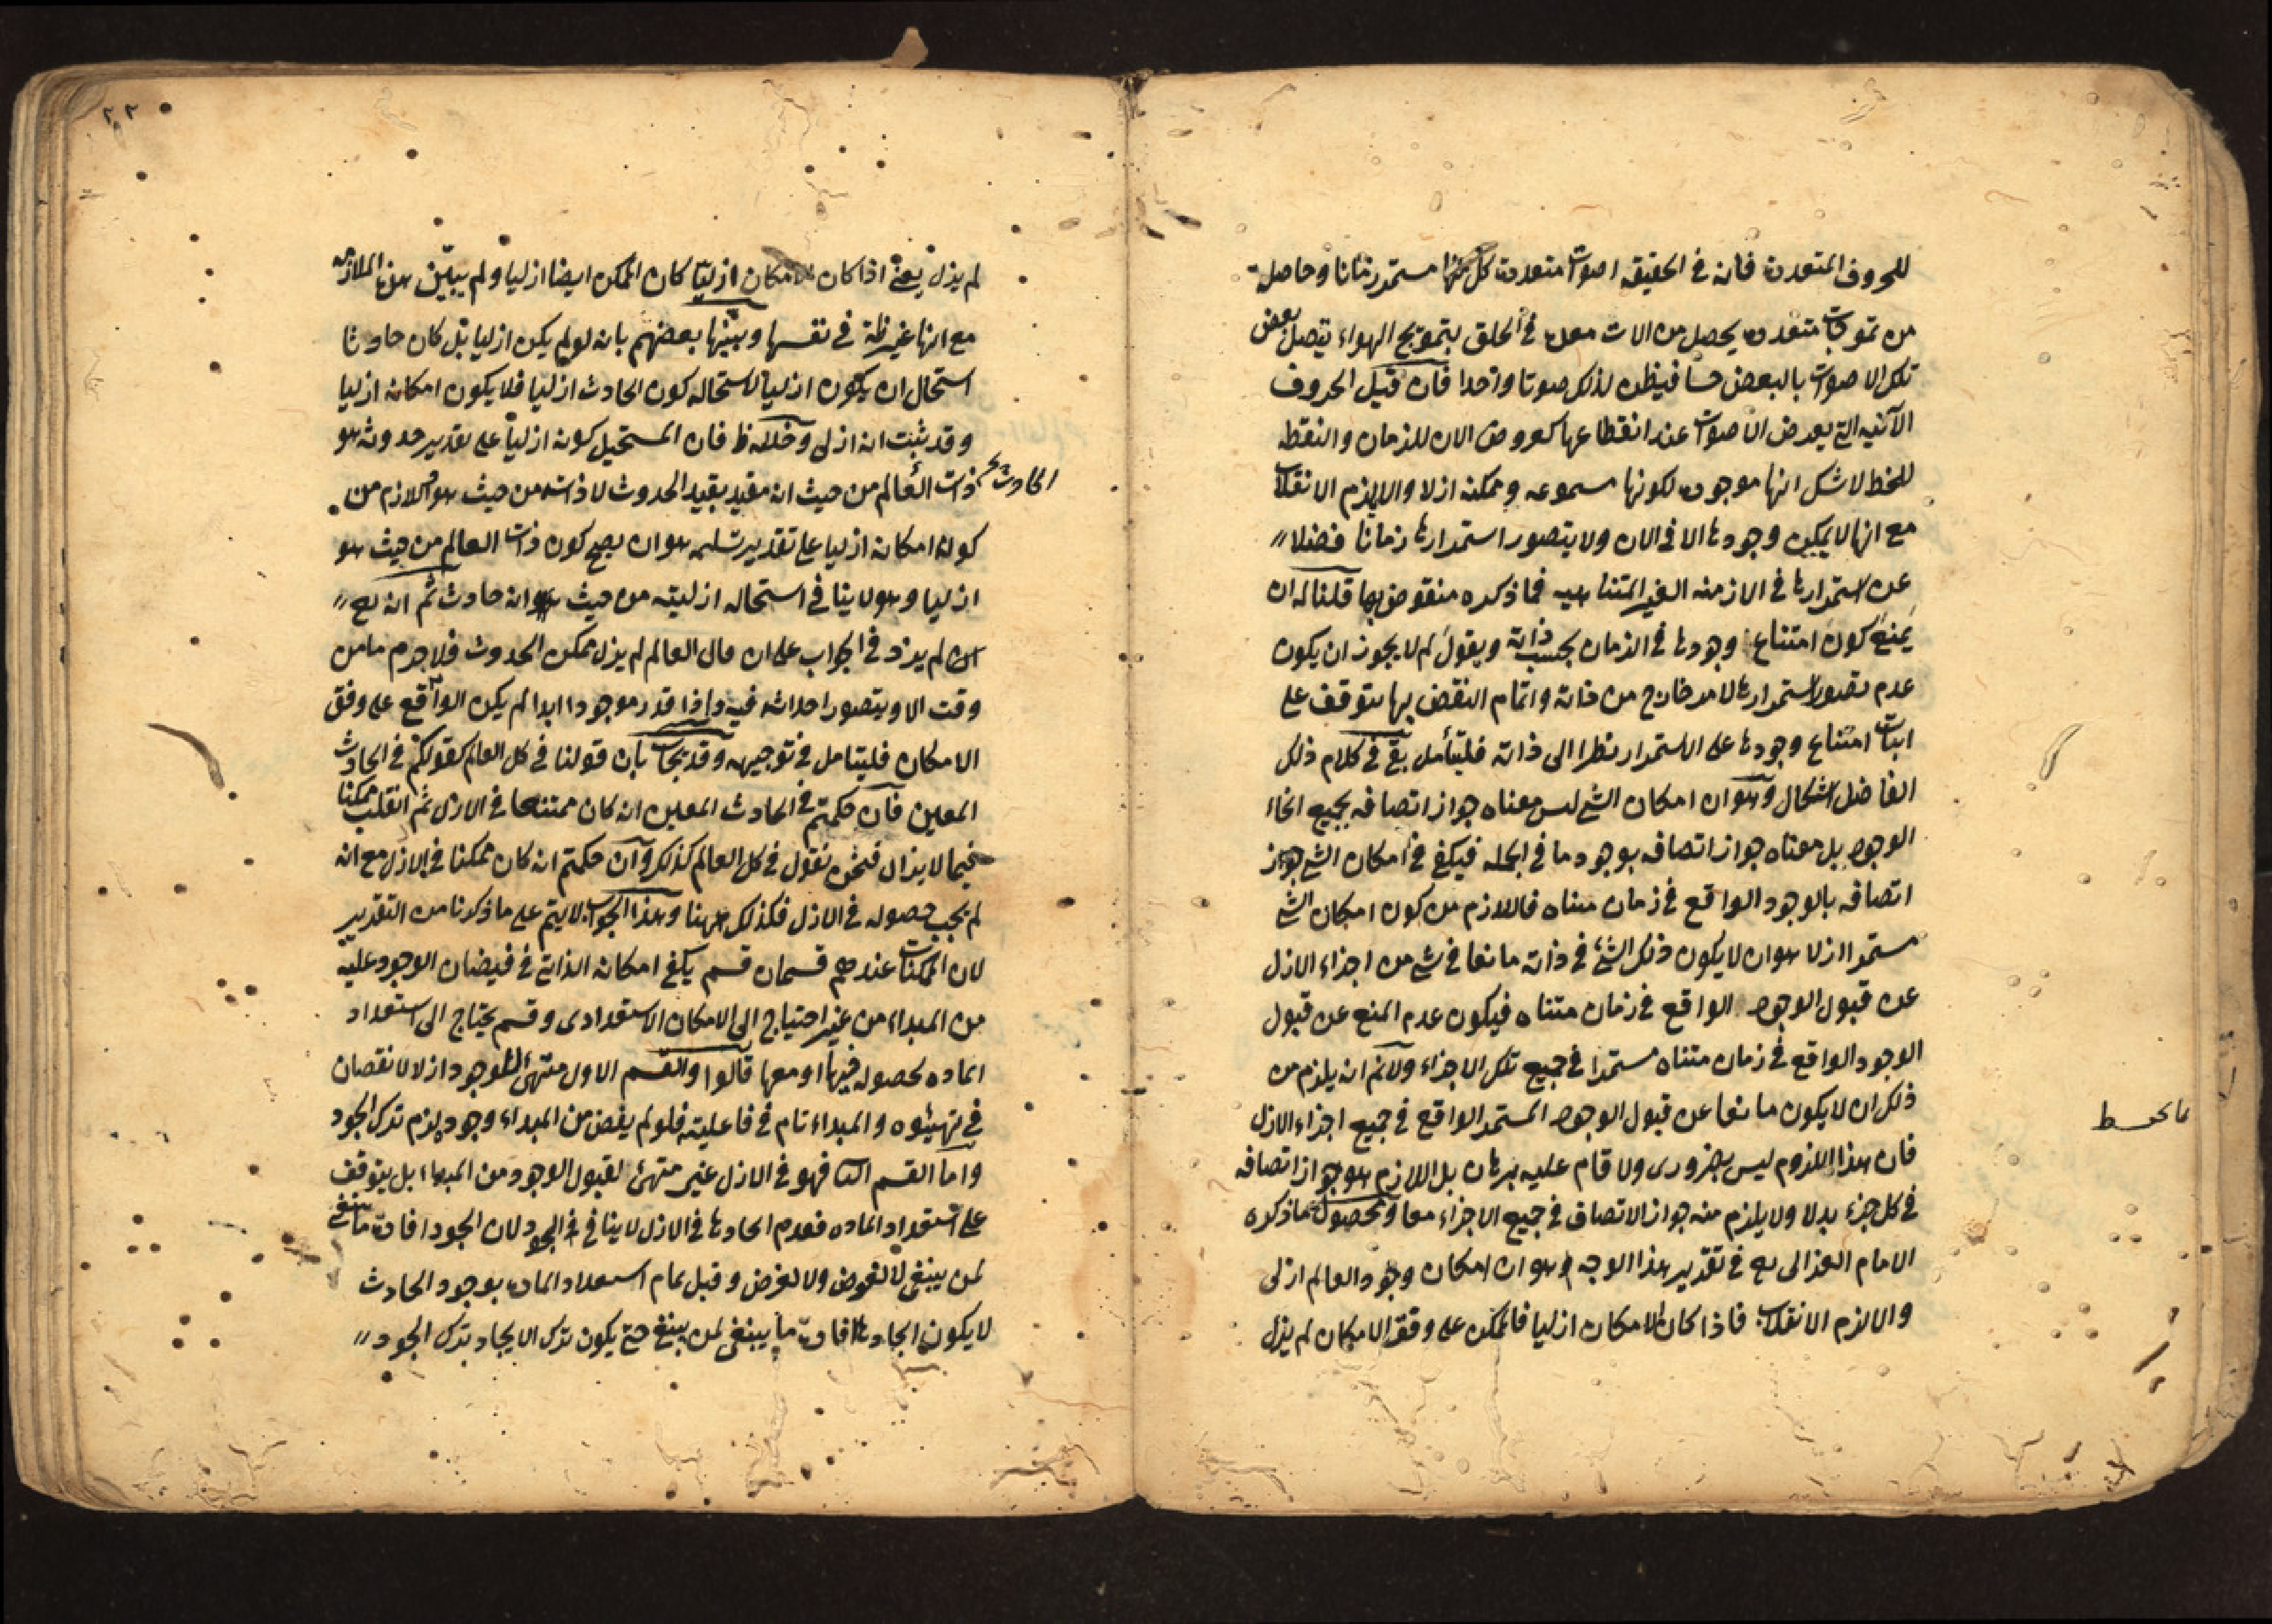 للحروف المتعددة فانه فى الحقيقه اصوات متعددة كل منها مستمر زمانا وحاصلة
من تموجات متعدده يحصل من الات معدة فى الحلق بتمويج الهواء يتصل بعض
تلك الاصوات بالبعض حسا فيظن لذلك صوتا واحدا فان قيل الحروف
الآنيه التى يعرض الاصوات عند انقطاعها كعروض الان للزمان والنقطه
للخط لاشك انها موجوده لكونها مسموعه وممكنه ازلا والا يلزم الانقلاب
مع انها لا يمكن وجودها الا فى الان ولا يتصور استمرارها زمانا فضلا
عن استمرارها فى الازمنه الغير المتناهيه فما ذكره منقوض بها قلنا له ان
يمنع كون امتناع وجودها فى الزمان بحسب ذاته ويقول لم لا يجوز ان يكون
عدم تصور استمرارها لامر خارج من ذاته واتمام النقض بها يتوقف على
اثبات امتناع وجودها على الاستمرار نظرا الى ذاته فليتأمل بقى فى كلام ذلك
الفاضل اشكال وهو ان امكان الشئ ليس معناه جواز اتصافه بجميع انحاء
الوجود بل معناه جواز اتصافه بوجود ما فى الجمله فيكفى فى امكان الشئ جواز
اتصافه بالوجود الواقع فى زمان متناه فاللازم من كون امكان الشئ
مستمرا ازلا هو ان لا يكون ذلك الشئ فى ذاته مانعا فى شئ من اجزاء الازل
عن قبول الوجود الواقع فى زمان متناه فيكون عدم المنع عن قبول
الوجود الواقع فى زمان متناه مستمرا فى جميع تلك الاجزاء ولا نم انه يلزم من
ذلك ان لا يكون مانعا عن قبول الوجود المستمر الواقع فى جميع اجزاء الازل
فان هذا اللزوم ليس بضرورى ولا قام عليه برهان بل اللازم هو جواز اتصافه
فى كل جزء بدلا ولا يلزم منه جواز الاتصاف فى جميع الاجزاء معا ومحصول ما ذكره
الامام الغزالى فى تقرير هذا الوجه هو ان امكان وجود العالم ازلى
والا لزم الانقلاب فاذا كان الامكان ازليا فالممكن على وفق الامكان لم يزل
لم يزل يعنى اذا كان الامكان ازليا كان الممكن ايضا ازليا ولم يبين هذه الملازمه
مع انها غير ظة فى نفسها وبينها بعضهم بانه لو لم يكن ازليا بل كان حادثا
استحال ان يكون ازليا لاستحاله كون الحادث ازليا فلا يكون امكانه ازليا
وقد ثبت انه ازلى وخلله ظ فان المستحيل كونه ازليا على تقدير حدوثه هو
الحادث
ذات العالم من حيث انه مقيد بقيد الحدوث لا ذاته من حيث هو واللازم من
كون امكانه ازليا على تقدير تسليمه هو ان يصح كون ذات العالم من حيث هو
ازليا وهو لا ينافى استحاله ازليته من حيث انه حادث ثم انه
لم يزد فى الجواب على ان قال العالم لم يزل ممكن الحدوث فلا جرم ما من
وقت الا ويتصور احداثه فيه واذا قدر موجودا ابدا لم يكن الواقع على وفق
الامكان فليتامل فى توجيهه وقد يجاب بان قولنا فى كل العالم كقولكم فى الحادث
المعين فان حكمتم فى الحادث المعين انه كان ممتنعا فى الازل ثم انقلب ممكنا
فيما لا يزال فنحن نقول فى كل العالم كذلك وان حكمتم انه كان ممكنا فى الازل مع انه
لم يجب حصوله فى الازل فكذلك ههنا وهذا الجواب لا يتم على ما ذكرنا من التقدير
لان الممكنات عندهم قسمان قسم يكفى امكانه الذاتى فى فيضان الوجود عليه
من المبداء من غير احتياج الى الامكان الاستعدادى وقسم يحتاج الى استعداد
الماده لحصوله فيها او معها قالوا والقسم الاول متهئ للوجود ازلا لا نقصان
فى تهيئوه والمبداء تام فى فاعليته فلو لم يفض من المبداء وجوده لزم ترك الجود
واما القسم الثا فهو فى الازل غير متهئ لقبول الوجود من المبداء بل يتوقف
على استعداد الماده فعدم ايجادها فى الازل لا ينافى الجود لان الجود افادة ما ينبغى
لمن ينبغى لا لعوض ولا لغرض وقبل تمام استعداد الماده بوجود الحادث
لا يكون ايجادها افادة ما ينبغى لمن ينبغى حتى يكون ترك الايجاد ترك الجود